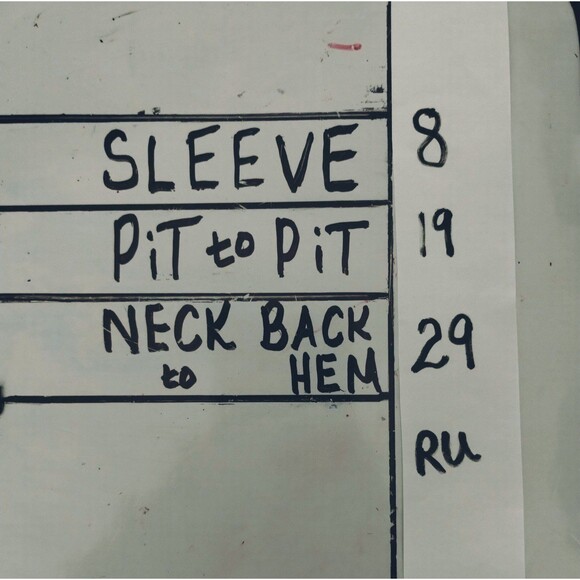 SLEEVE 8
PiT to PiT 19
NECK BACK 29
to HEM
RU